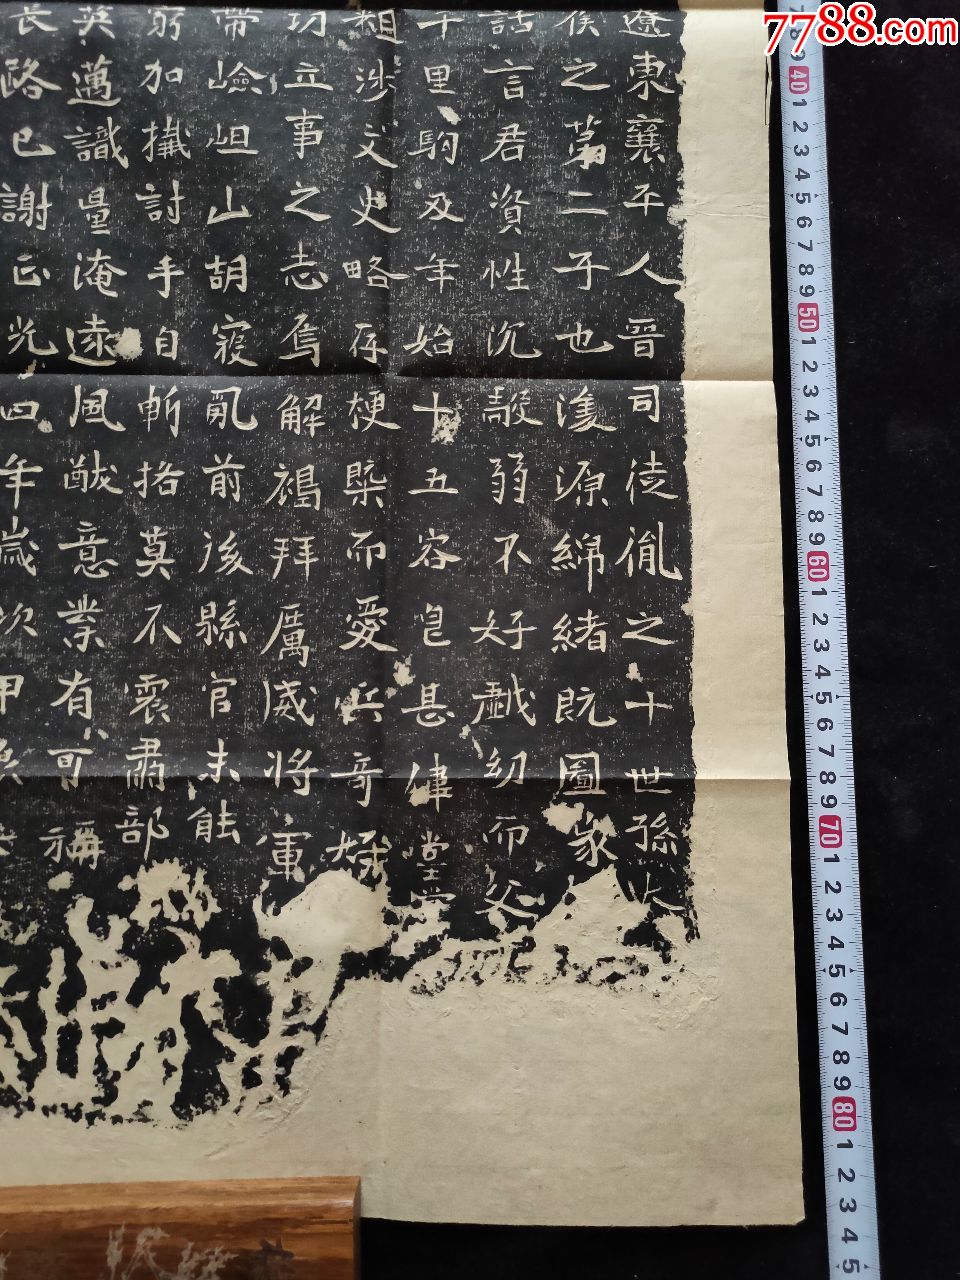 遼東襄平人晉司徒胤之十世孫
侯之苐二子也濬源綿緒既圖家
話言君資性沉毅弱不好戲幼而父
千里駒及年始十五容皃甚偉堂堂
粗涉文史略存梗槩而愛兵奇好
功立事之志焉解褐拜厲威將軍
帶嶮岨山胡寇亂前後縣官未能
窮加擒討手自斬挌莫不震肅部
英邁識量淹遠風猷意業有可稱
長路已謝正光四年歲次甲
7788.com
7 8 9 40 1 2 3 4 5 6 7 8 9 50 1 2 3 4 5 6 7 8 9 60 1 2 3 4 5 6 7 8 9 70 1 2 3 4 5 6 7 8 9 80 1 2 3 4 5